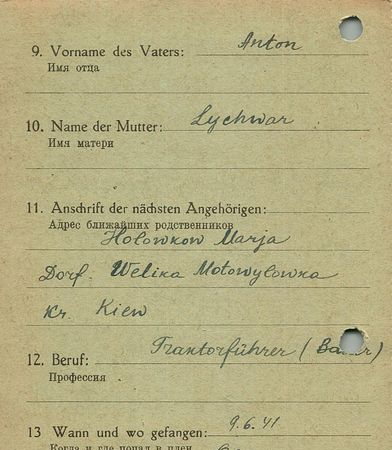 9. Vorname des Vaters: Anton
Имя отца
10. Name der Mutter: Lychwar
Имя матери
11. Anschrift der nächsten Angehörigen:
Адрес ближайших родственников
Holowkow Marja
Dorf. Welika Motowylowka
Kr. Kiew
12. Beruf: Traktorführer (Bauer)
Профессия
13 Wann und wo gefangen: 9.6.41
Когда и где попал в плен